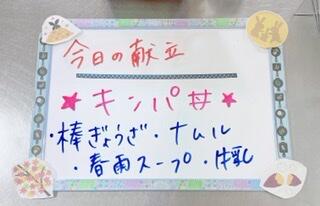 今日の献立
★キンパ丼★
・棒ぎょうざ・ナムル
・春雨スープ・牛乳